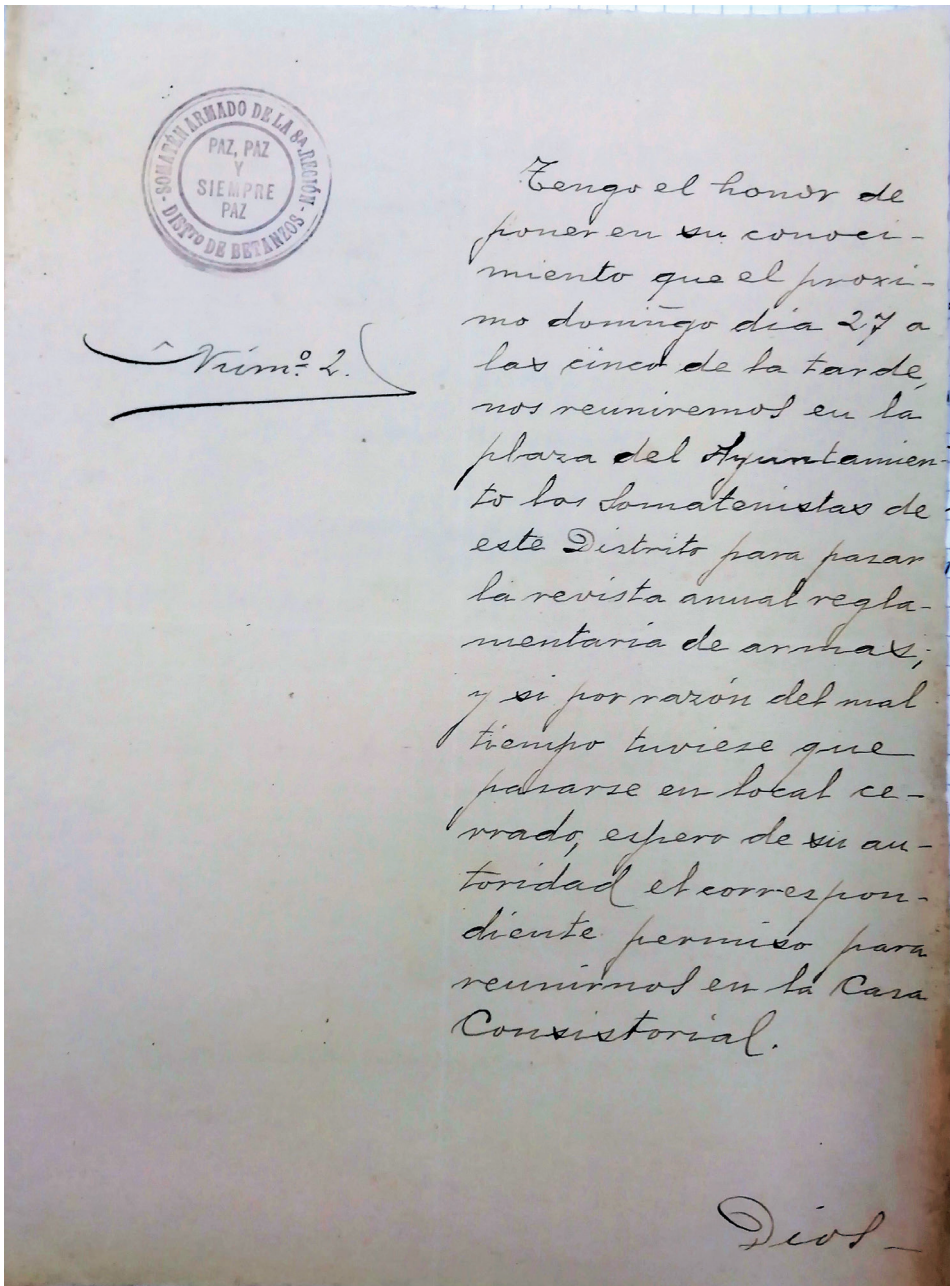 - SOMATÉN ARMADO DE LA 8ª REGIÓN -
DISTTO DE BETANZOS
PAZ, PAZ
Y
SIEMPRE
PAZ
Núm.º 2.
Tengo el honor de
poner en su conoci-
miento que el proxi-
mo domingo dia 27 a
las cinco de la tarde,
nos reuniremos en la
plaza del Ayuntamien-
to los Somatenistas de
este Distrito para pasar
la revista anual regla-
mentaria de armas;
y si por razón del mal
tiempo tuviese que
pasarse en local ce-
rrado, espero de su au-
toridad el correspon-
diente permiso para
reunirnos en la Casa
Consistorial.
Dios-